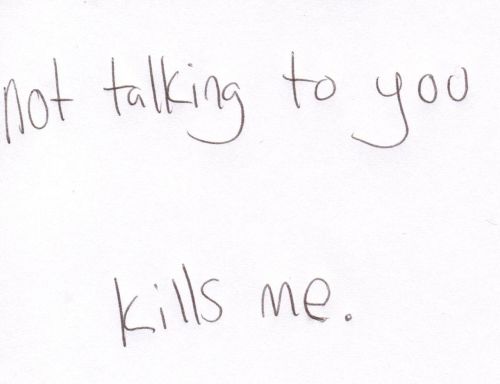 not talking to you
kills me.